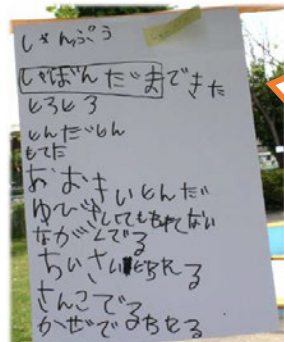 しゃんぷう
しゃぼんだまできた
とろとろ
とんだとん
もてた
おおきいとんだ
ゆびさしてもわれてない
ながくでる
ちいさい われる
さんこでる
かぜでるわれる